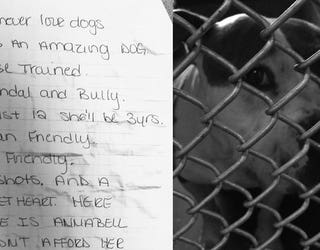 never love dogs
An Amazing DOG.
se Trained.
ndal and Bully.
12 she'll be 3yrs.
an Friendly.
Friendly.
shots. AND A
ETHEART. HERE
E IS ANNABELL
N'T AFFORD HER